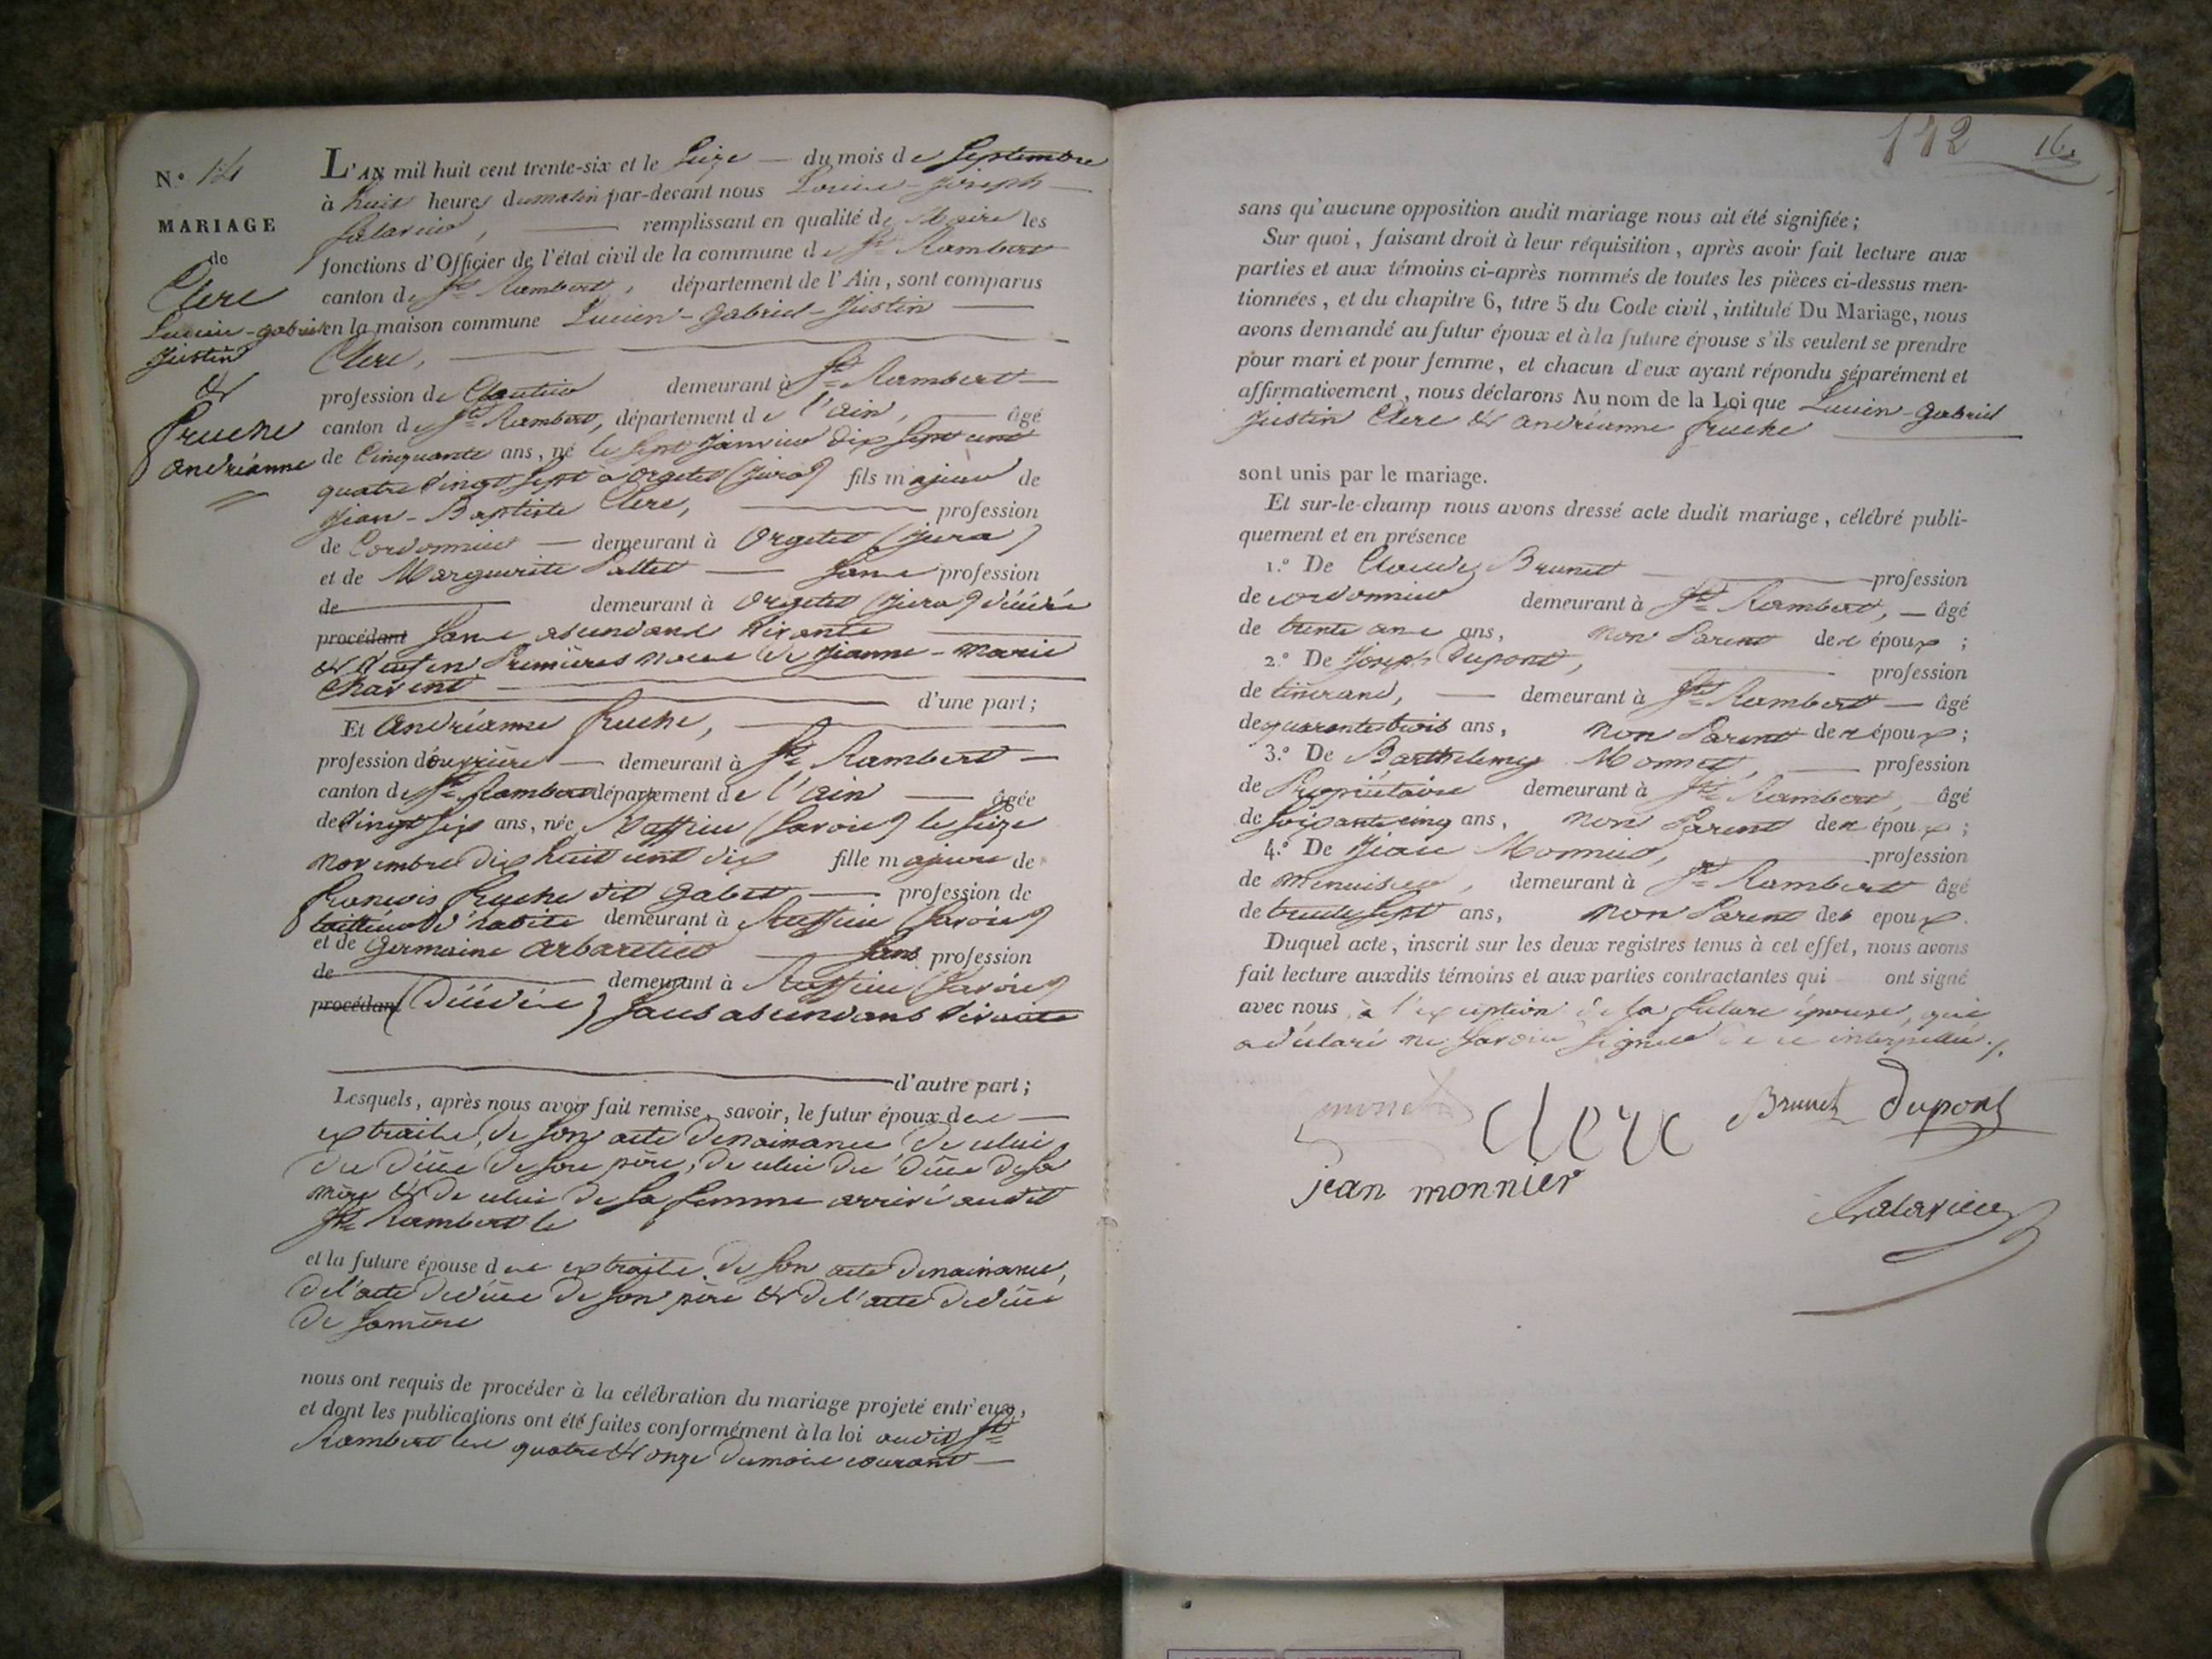 N.° 14
MARIAGE
de
Clerc
Lucien-gabriel
Justin
&
Fruche
andréanne
L'AN mil huit cent trente-six et le Seize — du mois de Septembre
à huit heures du matin par-devant nous Louis-Joseph
remplissant en qualité de Maire les
fonctions d'Officier de l'état civil de la commune de St Rambert
canton de St Rambert, département de l'Ain, sont comparus
en la maison commune Lucien-Gabriel-Justin
Clerc,
profession de demeurant à St Rambert
canton de St Rambert, département de l'ain, âgé
de Cinquante ans, né le Sept Janvier dix Sept cent
quatre vingt Sept à Orgelet (Jura) fils majeur de
Jean-Baptiste Clerc, profession
de Cordonnier — demeurant à Orgelet (Jura)
et de Marguerite Sans profession
de demeurant à Orgelet (Jura) décédée
procédant Sans ascendans vivants
& Veuf en Premières noces de Jeanne-Marie
Charent
d'une part;
Et Andréanne Fruche,
profession d'ouvrière — demeurant à St Rambert
canton de St Rambert département de l'ain âgée
de Vingt Six ans, née à Ruffieu (Savoie) le Seize
novembre dix huit cent dix fille majeure de
François Fruche dit Gabet profession de
tailleur d'habits demeurant à Ruffieu (Savoie)
et de Germaine Arbaretier Sans profession
de demeurant à Ruffieu (Savoie)
procédant (Décédée) Sans ascendans vivants
d'autre part;
Lesquels, après nous avoir fait remise, savoir, le futur époux des
extraits de son acte de naissance, de celui
du décès de son père, de celui du décès de sa
mère & de celui de sa femme arrivé audit
St Rambert le
et la future épouse des extraits de son acte de naissance,
de l'acte de décès de son père & de l'acte de décès
de sa mère
nous ont requis de procéder à la célébration du mariage projeté entr'eux,
et dont les publications ont été faites conformément à la loi audit St
Rambert les quatre & onze du mois courant
112 16
sans qu'aucune opposition audit mariage nous ait été signifiée;
Sur quoi, faisant droit à leur réquisition, après avoir fait lecture aux
parties et aux témoins ci-après nommés de toutes les pièces ci-dessus men-
tionnées, et du chapitre 6, titre 5 du Code civil, intitulé Du Mariage, nous
avons demandé au futur époux et à la future épouse s'ils veulent se prendre
pour mari et pour femme, et chacun d'eux ayant répondu séparément et
affirmativement, nous déclarons Au nom de la Loi que Lucien-Gabriel
Justin Clerc & andréanne fruche
sont unis par le mariage.
Et sur-le-champ nous avons dressé acte dudit mariage, célébré publi-
quement et en présence
1.° De Claude Brunet profession
de cordonnier demeurant à St Rambert, — âgé
de trente ans, non Parent des époux;
2.° De Joseph Dupont, profession
de tisserand, — demeurant à St Rambert — âgé
de quarante trois ans, non Parent des époux;
3.° De Barthelemy Monnet, profession
de Propriétaire demeurant à St Rambert, âgé
de soixante cinq ans, non Parent des époux;
4.° De Jean Monnier, profession
de menuisier, demeurant à St Rambert âgé
de trente Sept ans, non Parent des époux.
Duquel acte, inscrit sur les deux registres tenus à cet effet, nous avons
fait lecture auxdits témoins et aux parties contractantes qui ont signé
avec nous, à l'exception de la future épouse, qui
a déclaré ne savoir signer de ce interpellée.
monet Clerc Brunet Dupont
jean monnier